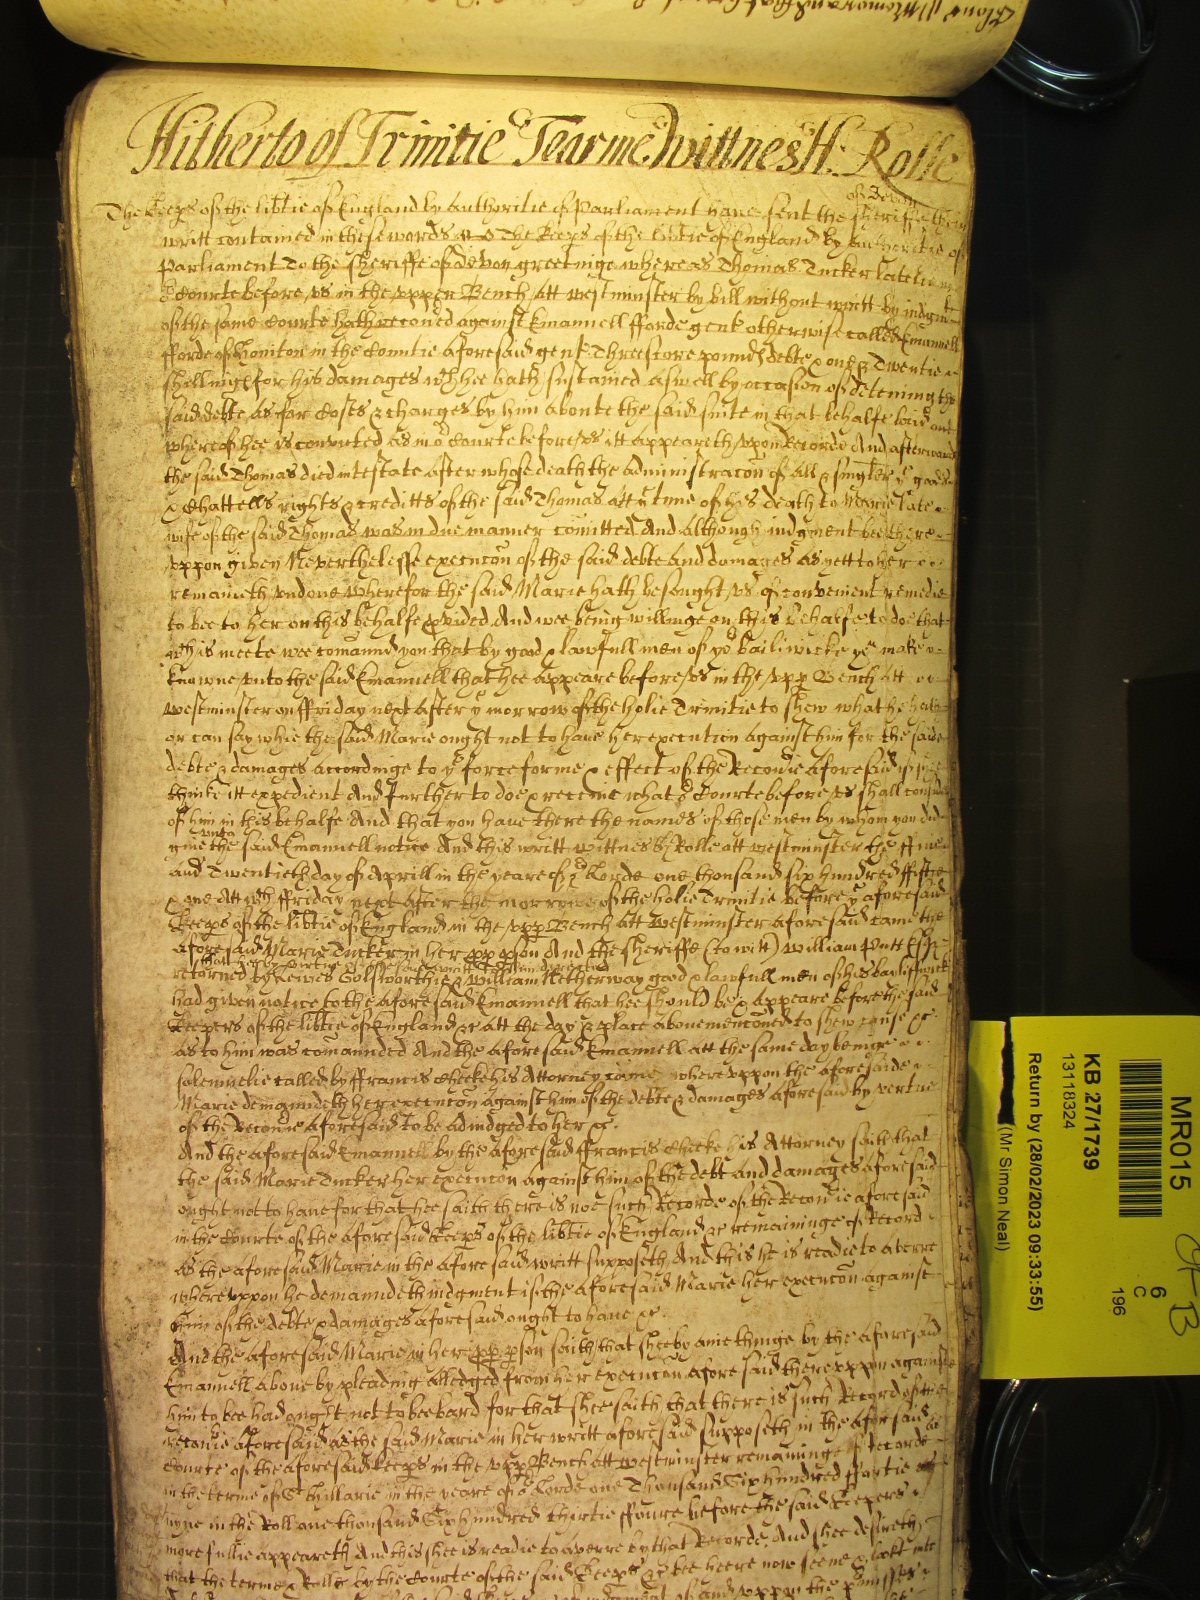 Hitherto of Trinitie Tearme Wittnes H: Rolle
of Devon
The Keeps of the libtie of England by Authoritie of Parliament have sent the Sheriffe their
writt contained in these words The Keeps of the libtie of England by Authoritie of
Parliament To the Sheriffe of Devon greetinge whereas Thomas Tucker late
Courte before us in the upper Bench att Westminster by bill without writt by iudgmt
of the same Courte hath recoued against Emanuell fforde gent otherwise called Emanuell
fforde of Honiton in the Countie aforesaid gent Threescore pounds debte Twentie
shillings for his damages wch hee hath sustained aswell by occasion of deteining the
said debte as for Costes & charges by him aboute the said suite in that behalfe laid out
whereof hee is convicted as in or Courte before us itt appeareth uppon Recorde And afterwards
the said Thomas died intestate after whose death the administracon of all & singler ye goods
& Chattells rights & creditts of the said Thomas att ye time of his death to Marie late
wife of the said Thomas was in due manner comitted And although iudgment bee there
uppon given Neverthelesse execucon of the said debte and damages as yett to her
remaineth undone wherefor the said Marie hath besought us of convenient remedie
to bee to her on this behalfe pvided And wee being willinge on this behalfe to doe that
wch is meete wee comaund you that by good & lawfull men of yor bailiwicke ye make
knowne unto the said Emanuell that hee appeare before us in the upp Bench att
Westminster on ffriday next after ye morrow of the holie Trinitie to shew what he hath
or can say whie the said Marie ought not to have her execution against him for the said
debte & damages accordinge to ye force forme & effect of the Recouie aforesaid if
thinke itt expedient And further to doe & receive what or Courte before us shall consider
of him in this behalfe And that you have there the names of those men by whom you did
unto
give the said Emanuell notice And this writt Wittnes H: Rolle att Westminster the
and Twentieth day of Aprill in the yeare of or Lorde one thousand six hundred fiftie
& one Att wch ffriday next after the morrowe of the holie Trinitie before ye aforesaid
Keeps of the libtie of England in the upp Bench att Westminster aforesaid came the
aforesaid Marie Tucker in her pp pson And the Sheriffe (to witt) William Putt Esqr
retorned by Lewes Golsworthie & William Netherway good & lawfull men of his bayliwicke
had given notice to the aforesaid Emanuell that hee should be & appeare before the said
Keepers of the libtie of England &c att the day & place abovemencioned to shew cause &c
as to him was comaunded And the aforesaid Emanuell att the same day beinge
solemnelie called by ffrancis Cheeke his Attorney came whereuppon the aforesaide
Marie demaundeth her execucon against him of the debte & damages aforesaid by vertue
of the Recouie aforesaid to be adiudged to her &c.
And the aforesaid Emanuell by the aforesaid ffrancis Cheeke his Attorney saith that
the said Marie Tucker her execucon against him of the debt and damages aforesaid
ought not to have for that hee saith there is not such Recorde of the Recouie aforesaid
in the Courte of the aforesaid Keeps of the libtie of England &c remaininge of Record
as the aforesaid Marie in the aforesaid writt supposeth And this he is readie to averre
whereuppon he demaundeth iudgment if the aforesaid Marie her execucon against
him of the debte & damages aforesaid ought to have &c.
And the aforesaid Marie in her pp pson saith that shee by anie thinge by the aforesaid
Emanuell above by pleading alledged from her execucon aforesaid thereuppon against
him to bee had ought not to bee bard for that shee saith that there is such Record of the
recouie aforesaid as the said Marie in her writt aforesaid supposeth in the aforesaid
Courte of the aforesaid Keeps in the upp Bench att Westminster remaininge of Recorde
in the terme of St Hillarie in the yeare of or Lorde one Thousand Six hundred ffortie
nyne in the Roll one thousand Six hundred thirtie ffoure before the said Keepers
more fullie appeareth And this shee is readie to averre by that Recorde. And shee desireth
that the terme & Rolle by the Courte of the said Keeps &c bee heere now seene & lookt into
KB 27/1739
13118324
Return by (28/02/2023 09:33:55)
(Mr Simon Neal)
MR015
6
C
196